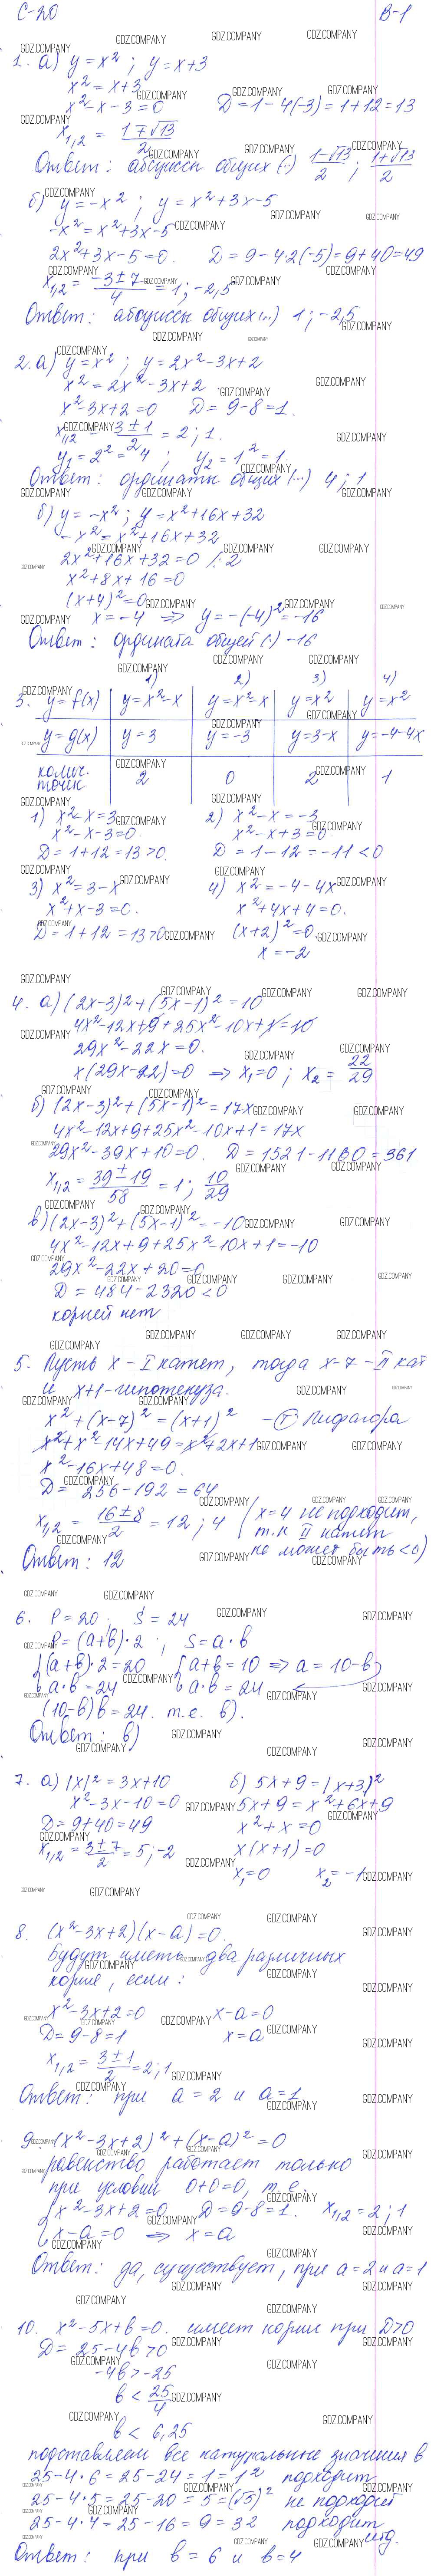 С-20 В-1
1. а) y = x²; y = x+3
x² = x+3
x²-x-3=0 D=1-4(-3)=1+12=13
x₁,₂ = (1∓√13)/2
Ответ: абсциссы общих (..) (1-√13)/2; (1+√13)/2
б) y=-x²; y=x²+3x-5
-x²=x²+3x-5
2x²+3x-5=0. D=9-4·2(-5)=9+40=49
x₁,₂ = (-3±7)/4 = 1; -2,5
Ответ: абсциссы общих (..) 1; -2,5
2. а) y=x²; y=2x²-3x+2
x²=2x²-3x+2
x²-3x+2=0 D=9-8=1.
x₁,₂ = (3±1)/2 = 2; 1.
y₁=2²=4; y₂=1²=1.
Ответ: ординаты общих (..) 4; 1
б) y=-x²; y=x²+16x+32
-x²=x²+16x+32
2x²+16x+32=0 /:2
x²+8x+16=0
(x+4)²=0
x=-4 ⇒ y=-(-4)²=-16
Ответ: ордината общей (.) -16
1) 2) 3) 4)
3. y=f(x) y=x²-x y=x²-x y=x² y=x²
y=g(x) y=3 y=-3 y=3-x y=-4-4x
колич.
точек 2 0 2 1
1) x²-x=3 2) x²-x=-3
x²-x-3=0. x²-x+3=0
D=1+12=13>0. D=1-12=-11<0
3) x²=3-x 4) x²=-4-4x
x²+x-3=0. x²+4x+4=0.
D=1+12=13>0 (x+2)²=0
x=-2
4. а) (2x-3)²+(5x-1)²=10
4x²-12x+9+25x²-10x+1=10
29x²-22x=0.
x(29x-22)=0 ⇒ x₁=0; x₂ = 22/29
б) (2x-3)²+(5x-1)²=17x
4x²-12x+9+25x²-10x+1=17x
29x²-39x+10=0. D=1521-1160=361
x₁,₂ = (39±19)/58 = 1; 10/29
в) (2x-3)²+(5x-1)²=-10
4x²-12x+9+25x²-10x+1=-10
29x²-22x+20=0
D=484-2320<0
корней нет
5. Пусть x - I катет, тогда x-7 - II кат
и x+1-гипотенуза.
x²+(x-7)²=(x+1)² - Ⓣ Пифагора
x²+x²-14x+49=x²+2x+1
x²-16x+48=0.
D=256-192=64
x₁,₂ = (16±8)/2 = 12; 4 (x=4 не подходит,
т.к II катет
не может быть <0)
Ответ: 12
6. P=20; S=24
P=(a+b)·2; S=a·b
{(a+b)·2=20 {a+b=10 ⇒ a=10-b
a·b=24 a·b=24
(10-b)b=24. т.е. в).
Ответ: в)
7. а) |x|²=3x+10 б) 5x+9=|x+3|²
x²-3x-10=0 5x+9=x²+6x+9
D=9+40=49 x²+x=0
x₁,₂ = (3±7)/2 = 5; -2 x(x+1)=0
x₁=0 x₂=-1
8. (x²-3x+2)(x-a)=0.
будут иметь два различных
корня, если:
x²-3x+2=0 x-a=0
D=9-8=1 x=a
x₁,₂ = (3±1)/2 = 2; 1
Ответ: при a=2 и a=1
9. (x²-3x+2)²+(x-a)²=0
равенство работает только
при условии 0+0=0, т.е.
{x²-3x+2=0 D=9-8=1. x₁,₂=2; 1
x-a=0 ⇒ x=a
Ответ: да, существует, при a=2 и a=1
10. x²-5x+b=0. имеет корни при D>0
D=25-4b>0
-4b>-25
b < 25/4
b < 6,25
подставляем все натуральные значения b
25-4·6=25-24=1=1² подходит
25-4·5=25-20=5=(√5)² не подходит
25-4·4=25-16=9=3² подходит
итд.
Ответ: при b=6 и b=4